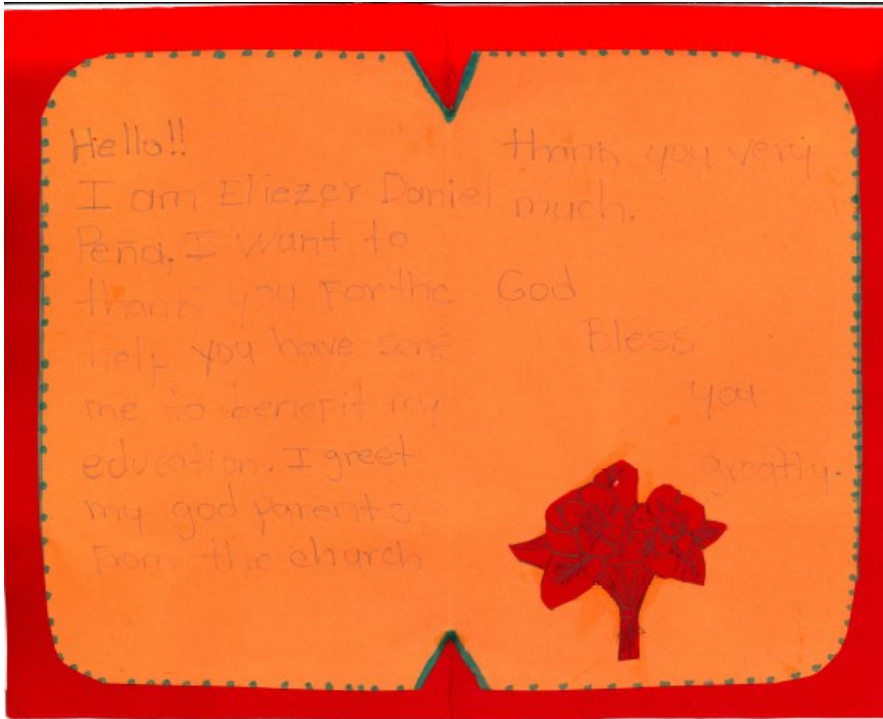 Hello!!
I am Eliezer Daniel
Peña, I want to
thank you For the
help you have sent
me to benefit my
education. I greet
my god parents
From the church
thank you very
much.
God
Bless
you
greatly.